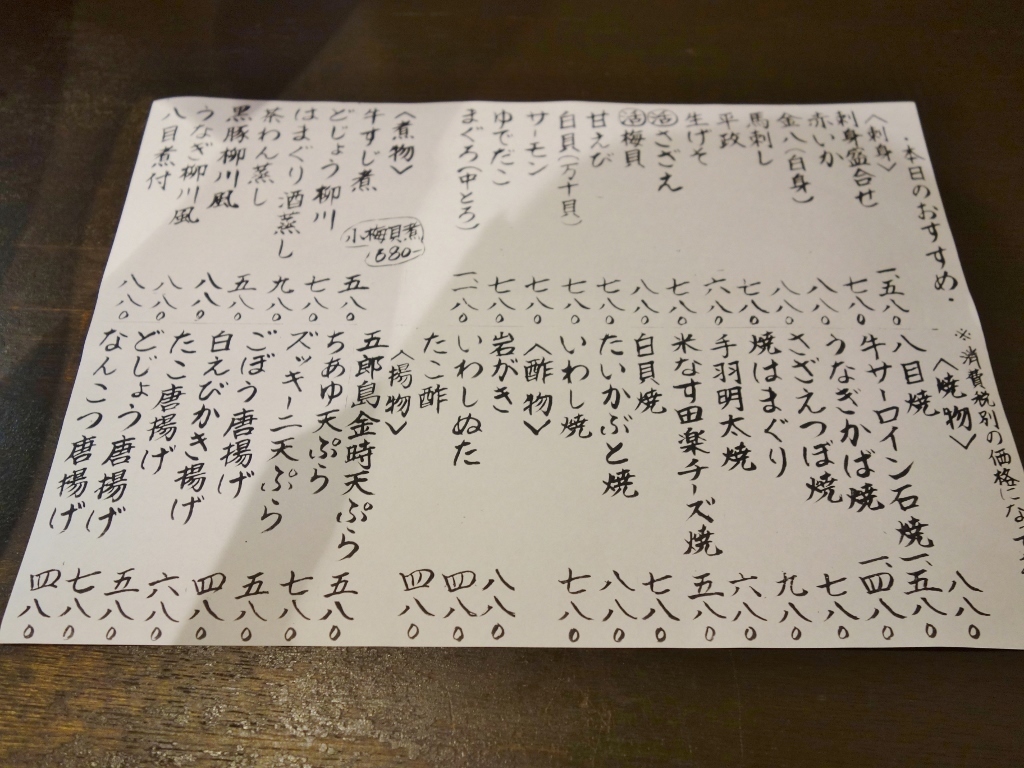 ・本日のおすすめ・
※消費税別の価格にな
〈刺身〉
刺身盛合せ 一、五八〇
赤いか 七八〇
金八(白身) 八八〇
馬刺し 八八〇
平政 七八〇
生げそ 六八〇
活さざえ 七八〇
活梅貝 八八〇
甘えび 七八〇
白貝(万十貝) 七八〇
サーモン 七八〇
ゆでだこ 七八〇
まぐろ(中とろ) 一、一八〇
〈煮物〉
小梅貝煮
680-
牛すじ煮 五八〇
どじょう柳川 七八〇
はまぐり酒蒸し 九八〇
茶わん蒸し 五八〇
黒豚柳川風 八八〇
うなぎ柳川風 八八〇
八目煮付 八八〇
〈焼物〉
八目焼 八八〇
牛サーロイン石焼 一、五八〇
うなぎかば焼 一、四八〇
さざえつぼ焼 七八〇
焼はまぐり 九八〇
手羽明太焼 六八〇
米なす田楽チーズ焼 五八〇
白貝焼 七八〇
たいかぶと焼 八八〇
いわし焼 七八〇
〈酢物〉
岩がき 八八〇
いわしぬた 四八〇
たこ酢 四八〇
〈揚物〉
五郎島金時天ぷら 五八〇
ちあゆ天ぷら 七八〇
ズッキーニ天ぷら 五八〇
ごぼう唐揚げ 四八〇
白えびかき揚げ 六八〇
たこ唐揚げ 五八〇
どじょう唐揚げ 七八〇
なんこつ唐揚げ 四八〇